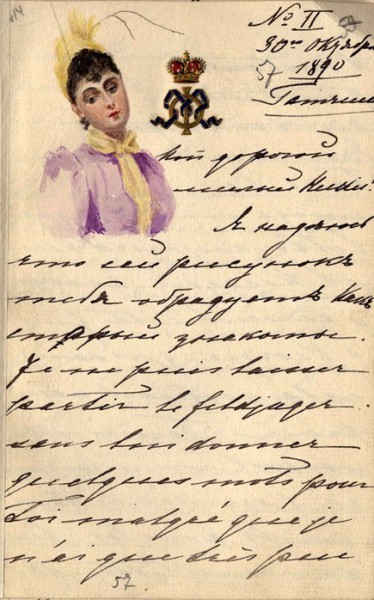 № II
30го Октября
57 1890
Гатчина
Мой дорогой
милый Ники!
Я надеюсь
что сей рисунокъ
тебя обрадуетъ какъ
старый знакомый.
Je ne puis laisser
partir le feldjäger
sans lui donner
quelques mots pour
Toi malgré que je
n'ai que très peu
57.